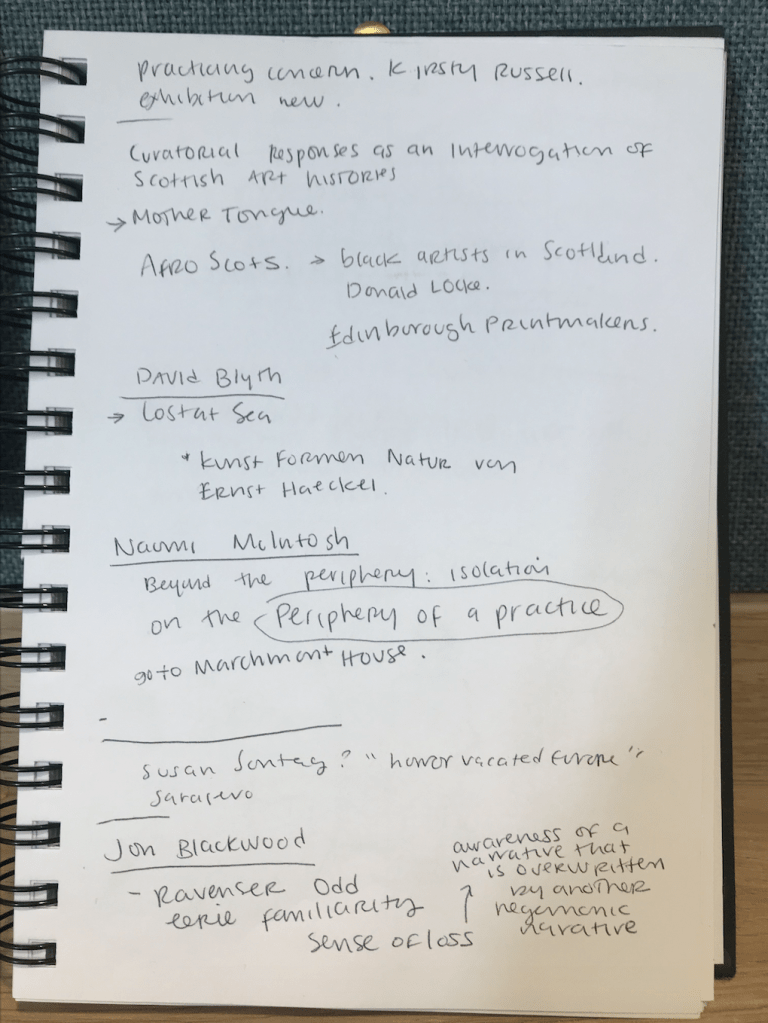 practicing concern. Kirsty Russell.
exhibition new.
Curatorial Responses as an Interrogation of
Scottish ART histories
→ Mother Tongue.
AFRO Scots. → black artists in Scotland.
Donald Locke.
Edinborough Printmakers.
David Blyth
→ Lost at Sea
* Kunst Formen Natur von
Ernst Haeckel.
Naomi McIntosh
Beyond the periphery: isolation
on the Periphery of a practice
go to Marchmont House.
-
Susan Sontag? " vacated Europe"
Sarajevo
Jon Blackwood
- Ravenser Odd
eerie familiarity
sense of loss
↑
awareness of a
narrative that
is overwritten
by another
hegemonic
narrative